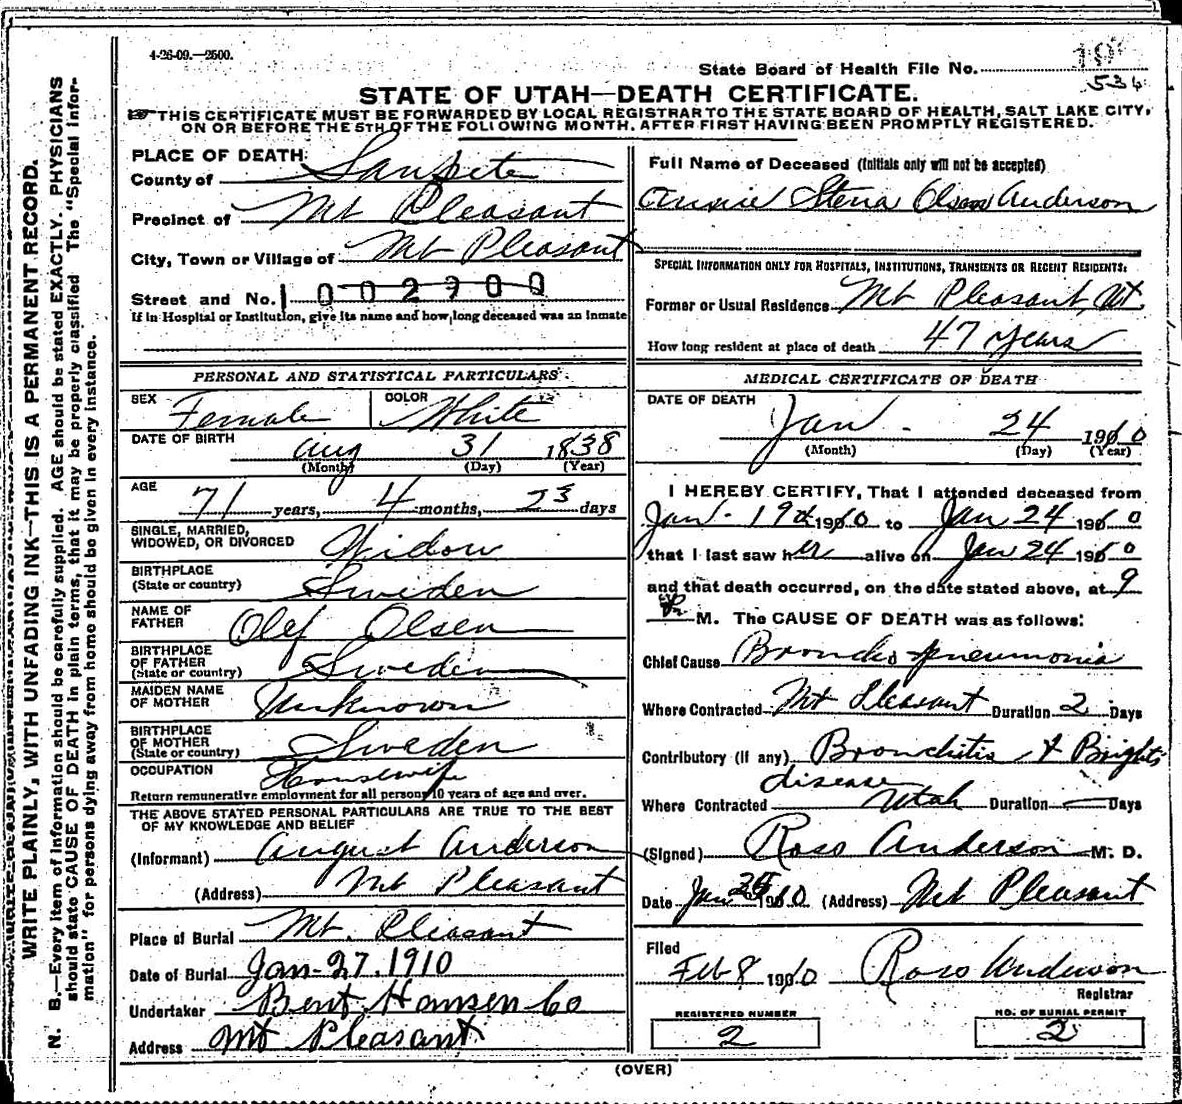 4-26-09.—2500.
State Board of Health File No.
536
STATE OF UTAH—DEATH CERTIFICATE.
THIS CERTIFICATE MUST BE FORWARDED BY LOCAL REGISTRAR TO THE STATE BOARD OF HEALTH, SALT LAKE CITY,
ON OR BEFORE THE 5TH OF THE FOLLOWING MONTH, AFTER FIRST HAVING BEEN PROMPTLY REGISTERED.
WRITE PLAINLY, WITH UNFADING INK—THIS IS A PERMANENT RECORD.
N. B.—Every item of information should be carefully supplied. AGE should be stated EXACTLY. PHYSICIANS
should state CAUSE OF DEATH in plain terms, that it may be properly classified. The "Special Infor-
mation" for persons dying away from home should be given in every instance.
PLACE OF DEATH:
County of Sanpete
Precinct of Mt Pleasant
City, Town or Village of Mt Pleasant
Street and No. 002900
If in Hospital or Institution, give its name and how long deceased was an inmate
PERSONAL AND STATISTICAL PARTICULARS
SEX Female COLOR White
DATE OF BIRTH Aug 31 1838
(Month) (Day) (Year)
AGE 71 years, 4 months, 23 days
SINGLE, MARRIED,
WIDOWED, OR DIVORCED Widow
BIRTHPLACE
(State or country) Sweden
NAME OF
FATHER Olef Olsen
BIRTHPLACE
OF FATHER
(State or country) Sweden
MAIDEN NAME
OF MOTHER Unknown
BIRTHPLACE
OF MOTHER
(State or country) Sweden
OCCUPATION Housewife
Return remunerative employment for all persons 10 years of age and over.
THE ABOVE STATED PERSONAL PARTICULARS ARE TRUE TO THE BEST
OF MY KNOWLEDGE AND BELIEF
(Informant) August Anderson
(Address) Mt Pleasant
Place of Burial Mt. Pleasant
Date of Burial Jan-27.1910
Undertaker Bent Hansen Co
Address Mt Pleasant
Full Name of Deceased (Initials only will not be accepted)
Annie Stena Olsen Anderson
SPECIAL INFORMATION ONLY FOR HOSPITALS, INSTITUTIONS, TRANSIENTS OR RECENT RESIDENTS:
Former or Usual Residence Mt Pleasant, Ut.
How long resident at place of death 47 years
MEDICAL CERTIFICATE OF DEATH
DATE OF DEATH
Jan. 24 1910
(Month) (Day) (Year)
I HEREBY CERTIFY, That I attended deceased from
Jan. 19th 1910 to Jan 24 1910
that I last saw her alive on Jan 24 1910
and that death occurred, on the date stated above, at 9
P. M. The CAUSE OF DEATH was as follows:
Chief Cause Broncho pneumonia
Where Contracted Mt Pleasant Duration 2 Days
Contributory (if any) Bronchitis & Brights
disease
Where Contracted Utah Duration — Days
(Signed) Ross Anderson M. D.
Date Jan 25 1910 (Address) Mt Pleasant
Filed
Feb 8 1910 Ross Anderson
Registrar
REGISTERED NUMBER
2
NO. OF BURIAL PERMIT
2
(OVER)